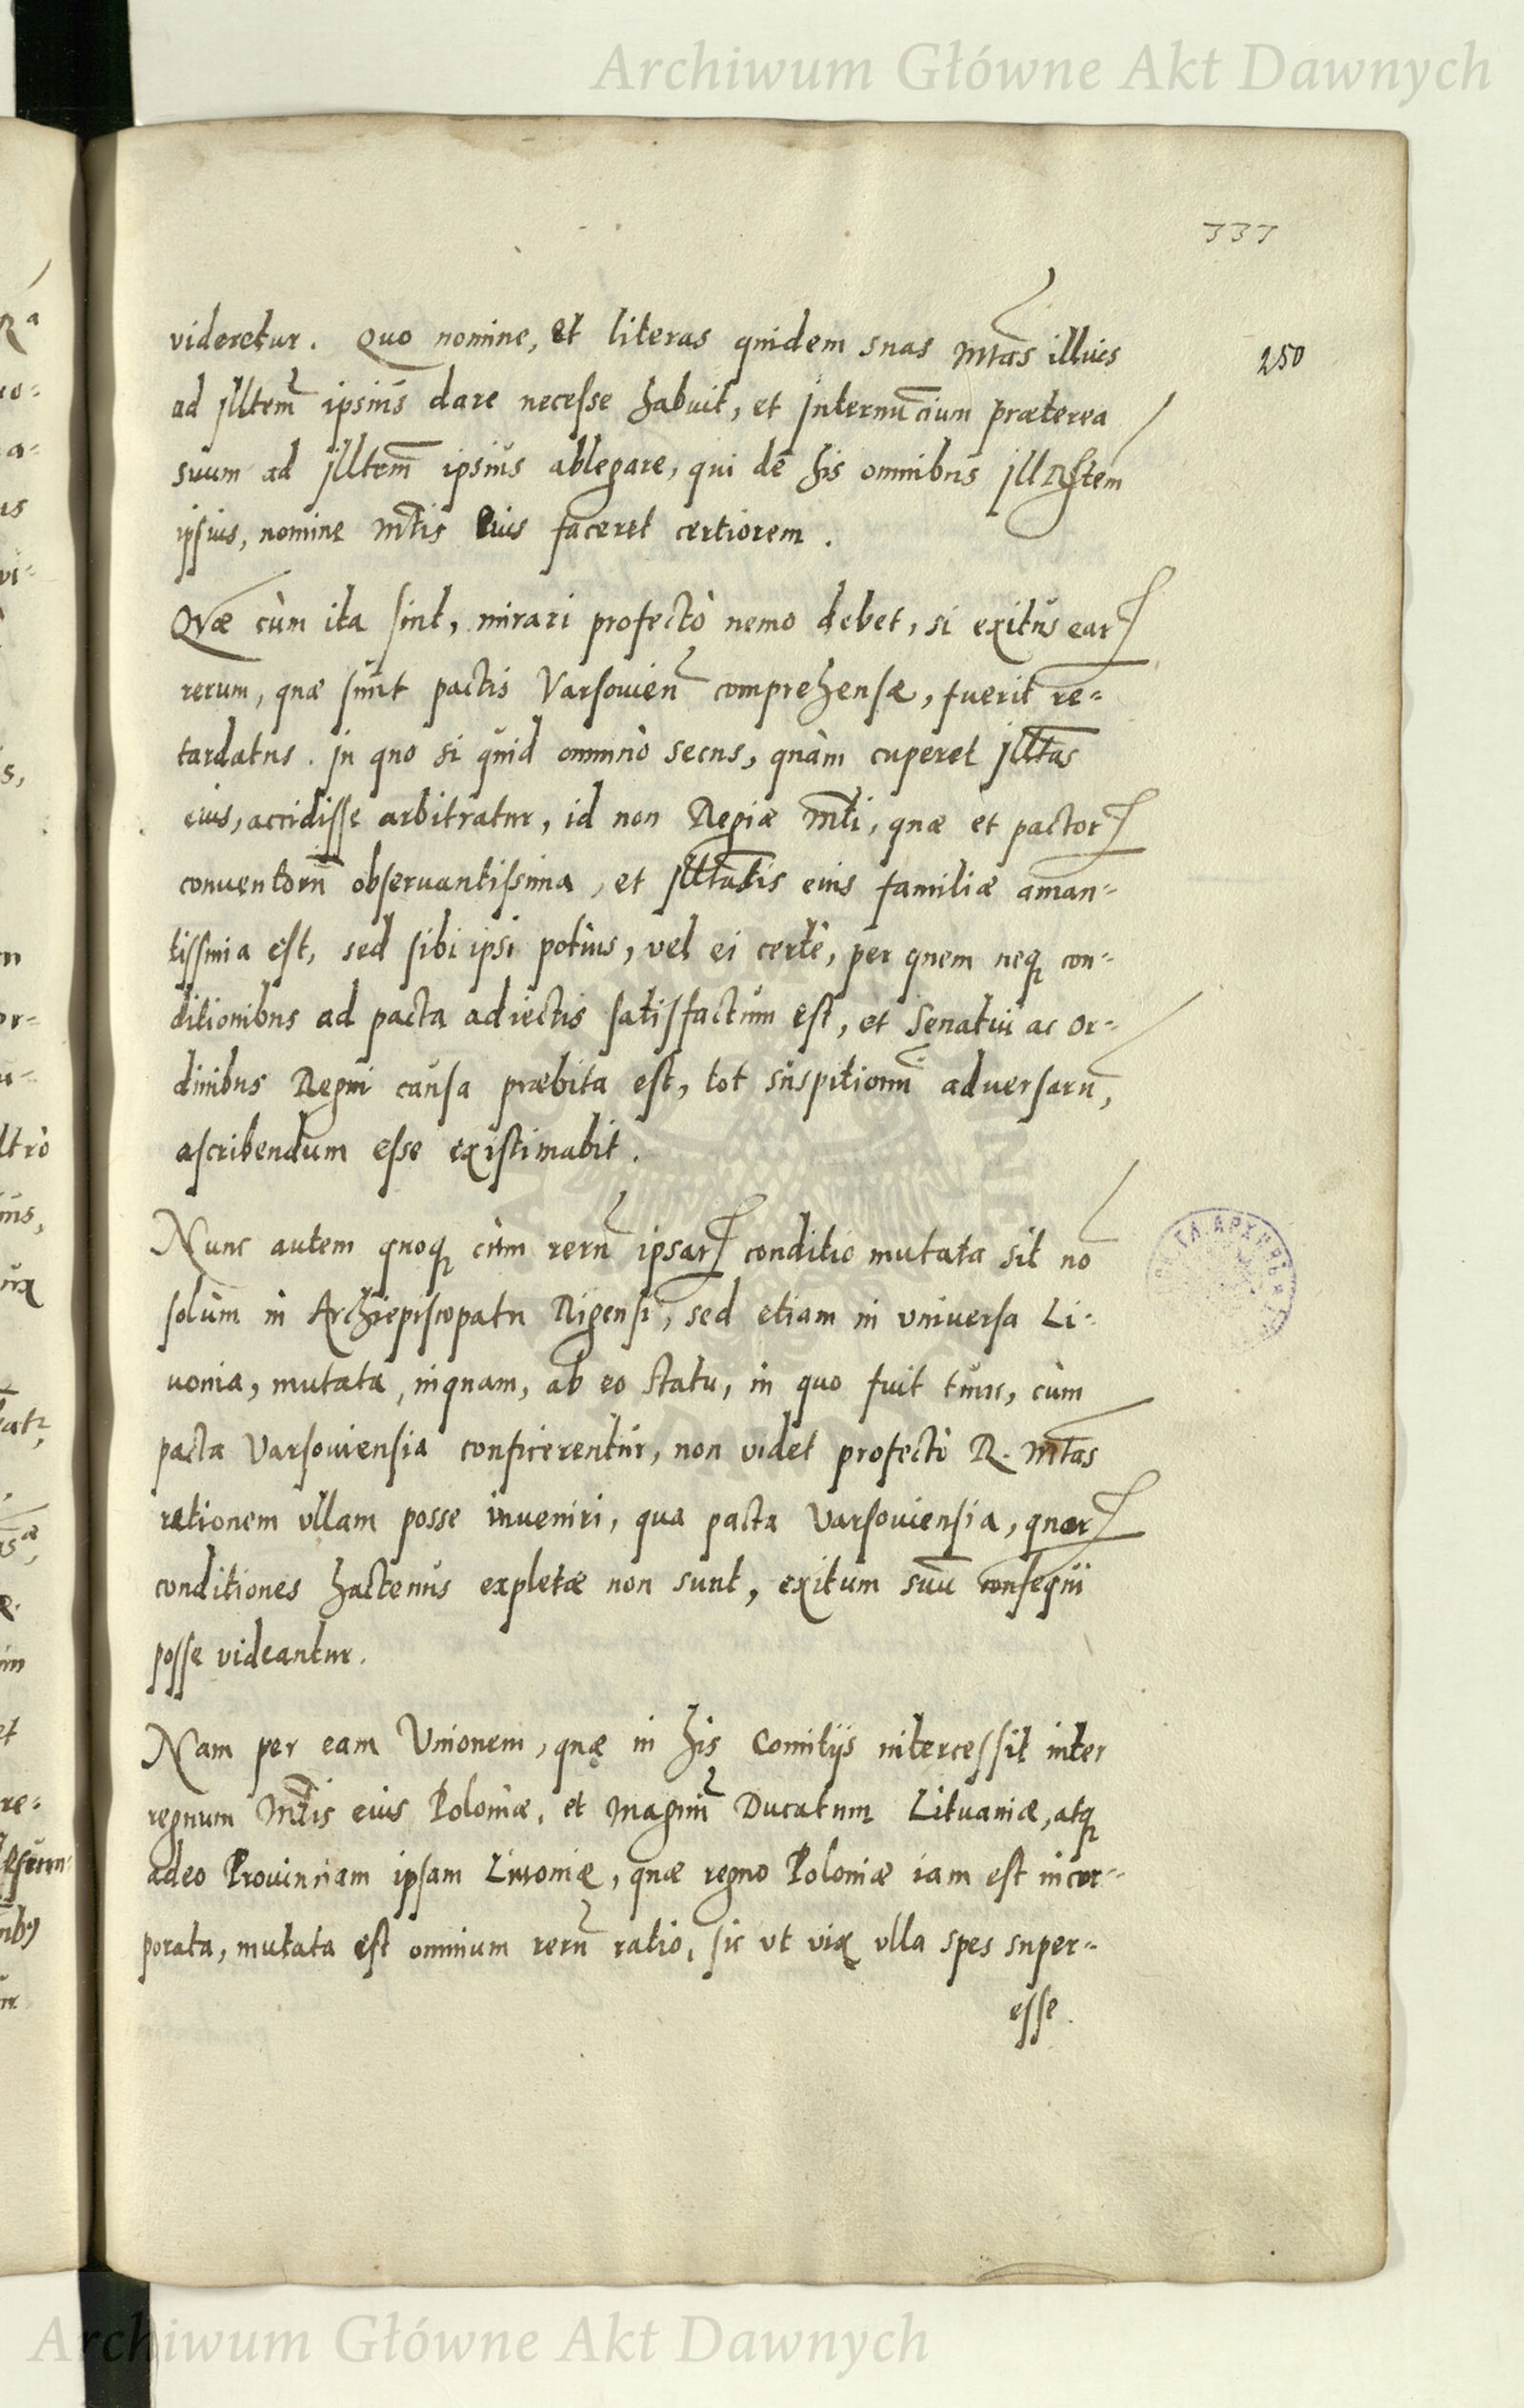 Archiwum Główne Akt Dawnych
337
250
videretur. Quo nomine, et literas quidem suas Mtas illius
ad Illtem ipsius dare necesse habuit, et Internuncium præterea
suum ad Illtem ipsius ablegare, qui de his omnibus Illustem
ipsius, nomine Mtis Eius faceret certiorem.
Qvæ cùm ita sint, mirari profectò nemo debet, si exitus ear
rerum, quæ sunt pactis Varsovien comprehensæ, fuerit re-
tardatus. In quo si quid omninò secus, quàm cuperet Illtas
eius, accidisse arbitratur, id non Regiæ Mti, quæ et pactor
conventorũ observantissima, et Illtatis eius familiæ aman-
tissima est, sed sibi ipsi potius, vel ei certè, per quem neq con-
ditionibus ad pacta adiectis satisfactum est, et Senatui ac or-
dinibus Regni causa præbita est, tot suspitionũ adversarũ,
ascribendum esse existimabit.
Nunc autem quoq cùm rerũ ipsar conditio mutata sit no
solùm in Archiepiscopatu Rigensi, sed etiam in vniversa Li-
uonia, mutata, inquam, ab eo statu, in quo fuit tunc, cùm
pacta Varsouiensia conficerentur, non videt profectò R. Mtas
rationem vllam posse inveniri, qua pacta Varsouiensia, quor
conditiones hactenus expletæ non sunt, exitum suũ consequi
posse videantur.
Nam per eam Vnionem, quę in his Comitijs intercessit inter
regnum Mtis eius Poloniæ, et Magnũ Ducatum Lituaniæ, atq
adeo Provinciam ipsam Liuoniæ, quæ regno Poloniæ iam est incor-
porata, mutata est omnium rerũ ratio, sic vt vix vlla spes super-
esse.
Archiwum Główne Akt Dawnych